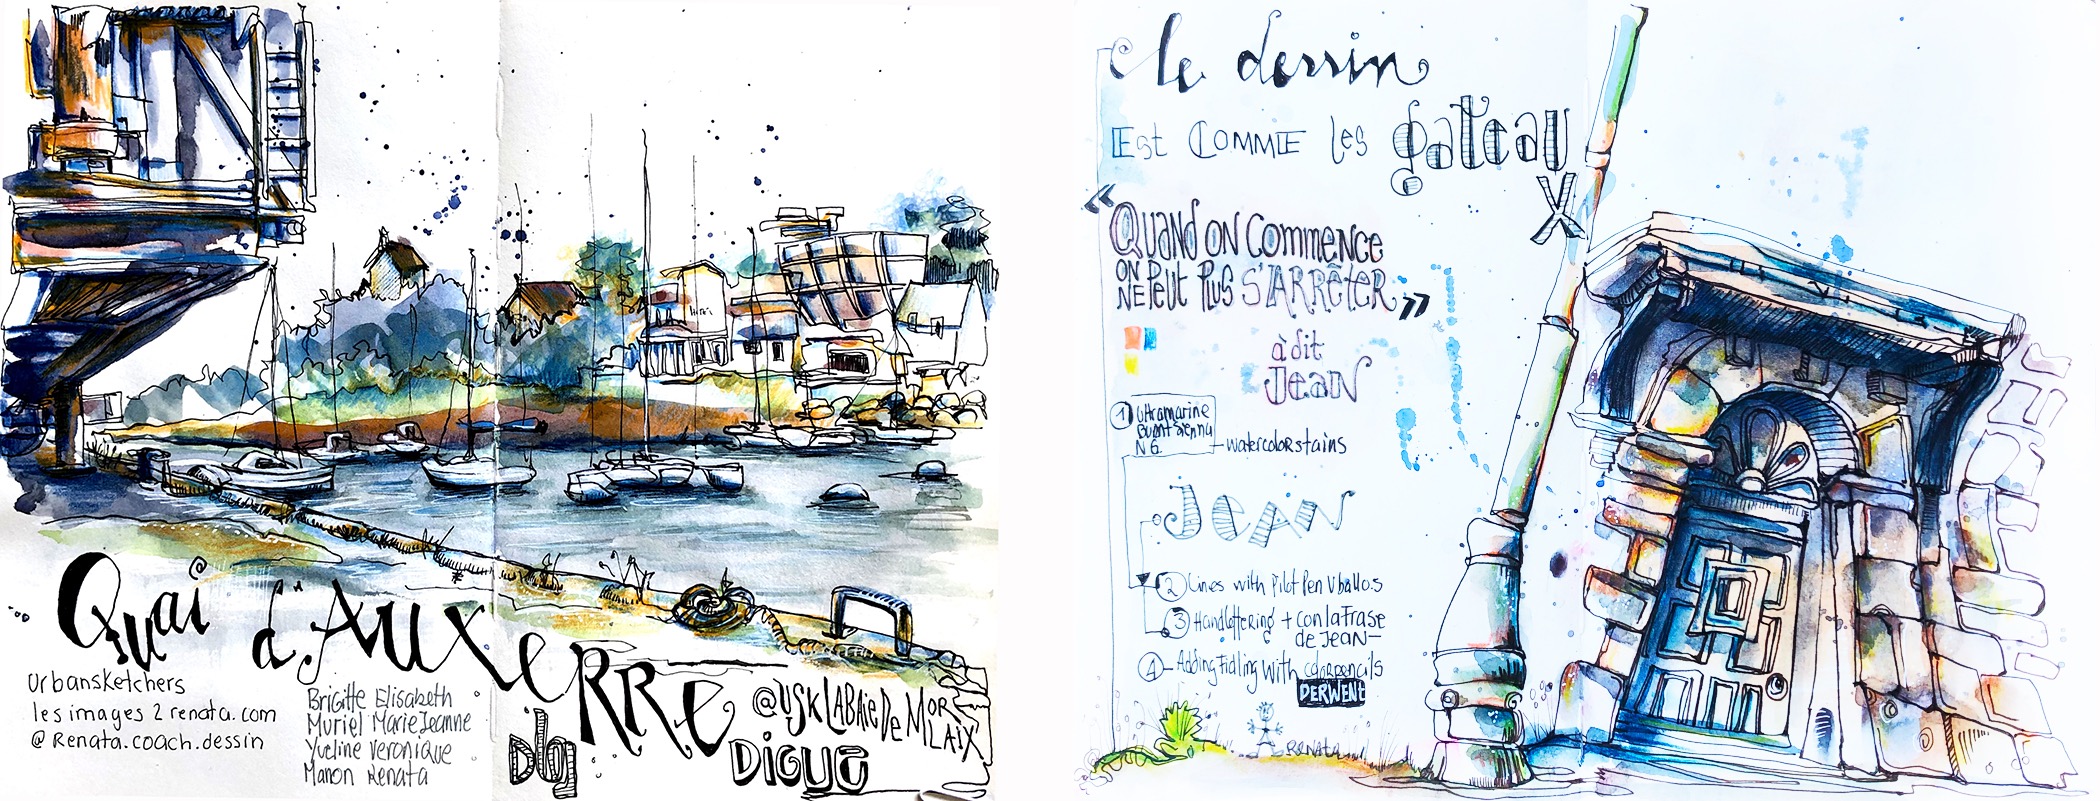 Quai d'Auxerre
urbansketchers
les images 2 renata.com
@ Renata.coach.dessin
Brigitte Elisabeth
Muriel MarieJeanne
Yveline Veronique
Manon Renata
@USKLABAieDeMORLAIX
DiGUE
le dessin
Est COMME les gateau
X
“Quand on commence
on
ne Peut Plus s'ARRêter”
à dit
Jean
1 ultramarine
Burnt Sienna
N 6.
watercolor stains
JEAN
2 Lines with Pilot Pen Vball 0.5
3 Handlettering + con la frase
de Jean-
4 - Adding Fidling with colorpencils
DERWENT
RENATA